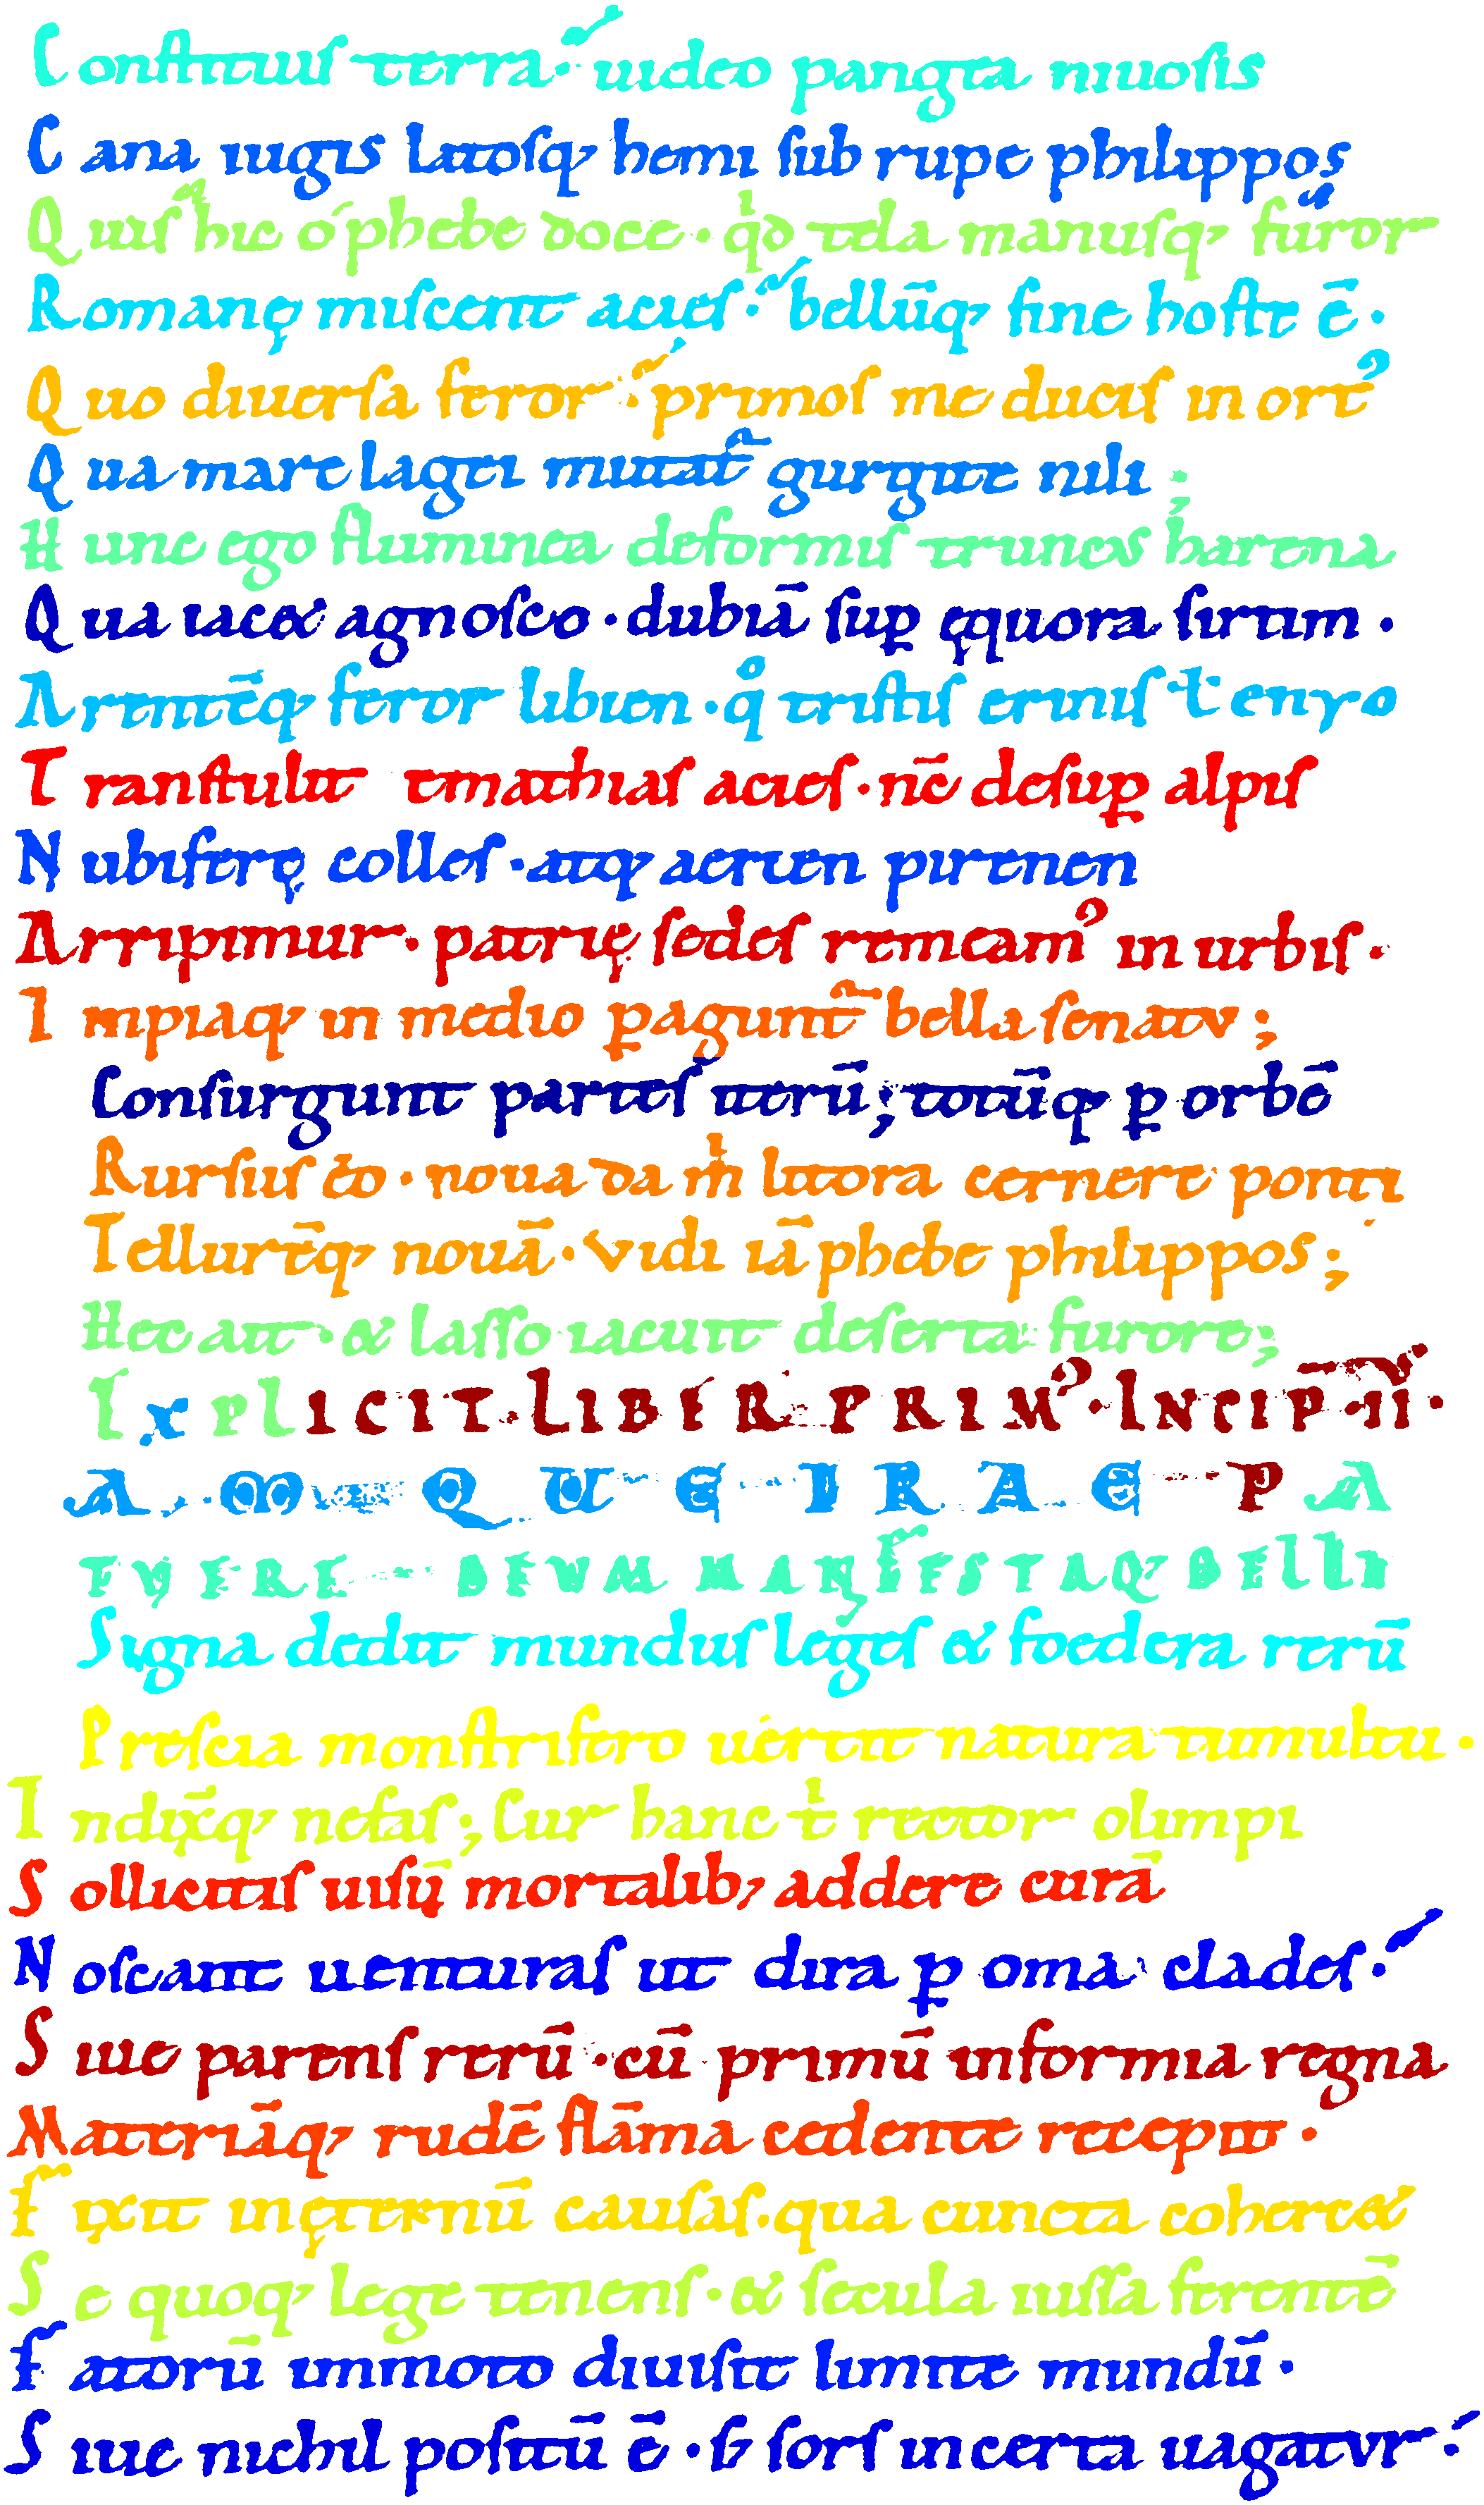 Constituis terra· uideo pangea niuosis
Cana iugis latosq; hemi sub rupe philippos
Quis hic o phebe doce· qd tela manusq; furor
Romanę miscent acies· bellūq; sine hoste ē·
Quo diuersa feror· primos me ducis in ort᾿
Qua mare lagei mutat gurgite nili
Hunc ego fluminea deformis truncus harena
Qua iacet agnosco· dubiā sup ęquora sirtim·
Arentēq; feror libien· q tristis erinis t enyo
Transtulit emathias acies· nc̄ desup alpis
Nubiferę colles· atq; aeriem pirenen
Arripimur· patrię sedes remeam᾿ in urbis·
Impiaq; in medio pagunt̄ bella senatu;
Consurgunt partes iterū; totūq; p orbē
Rursus eo· noua da m̄ litora cernere ponti
Tellurēq; nouā· vidi iā phebe philippos;
Hec ait· et lasso iacuit deserta furore;
EXPLICIT· LIBER PRIM᾿· INCIP̄· II·
IAMQUE IRAE PA
TVERE DEVM MANIFESTAQ; BELLI
Signa dedit mundus leges et foedera rerū
Prescia monstrifero uertit natura tumultu·
Indix̄q; nefas; Cur hanc t rector olimpi
Sollicitis uisū mortalib; addere curā
Noscant uenturas ut dira p omа clades·
Siue parens rerū· cū primū informia regna
Materiāq; rudē flāma cedente recepit·
Fixit inęternū causas· qua cuncta cohercet
Se quoq; lege tenens· et secula iussa ferentē
Fatorū immoto diuisit limite mundū·
Siue nichil positū ē· s; sors incerta uagatur·